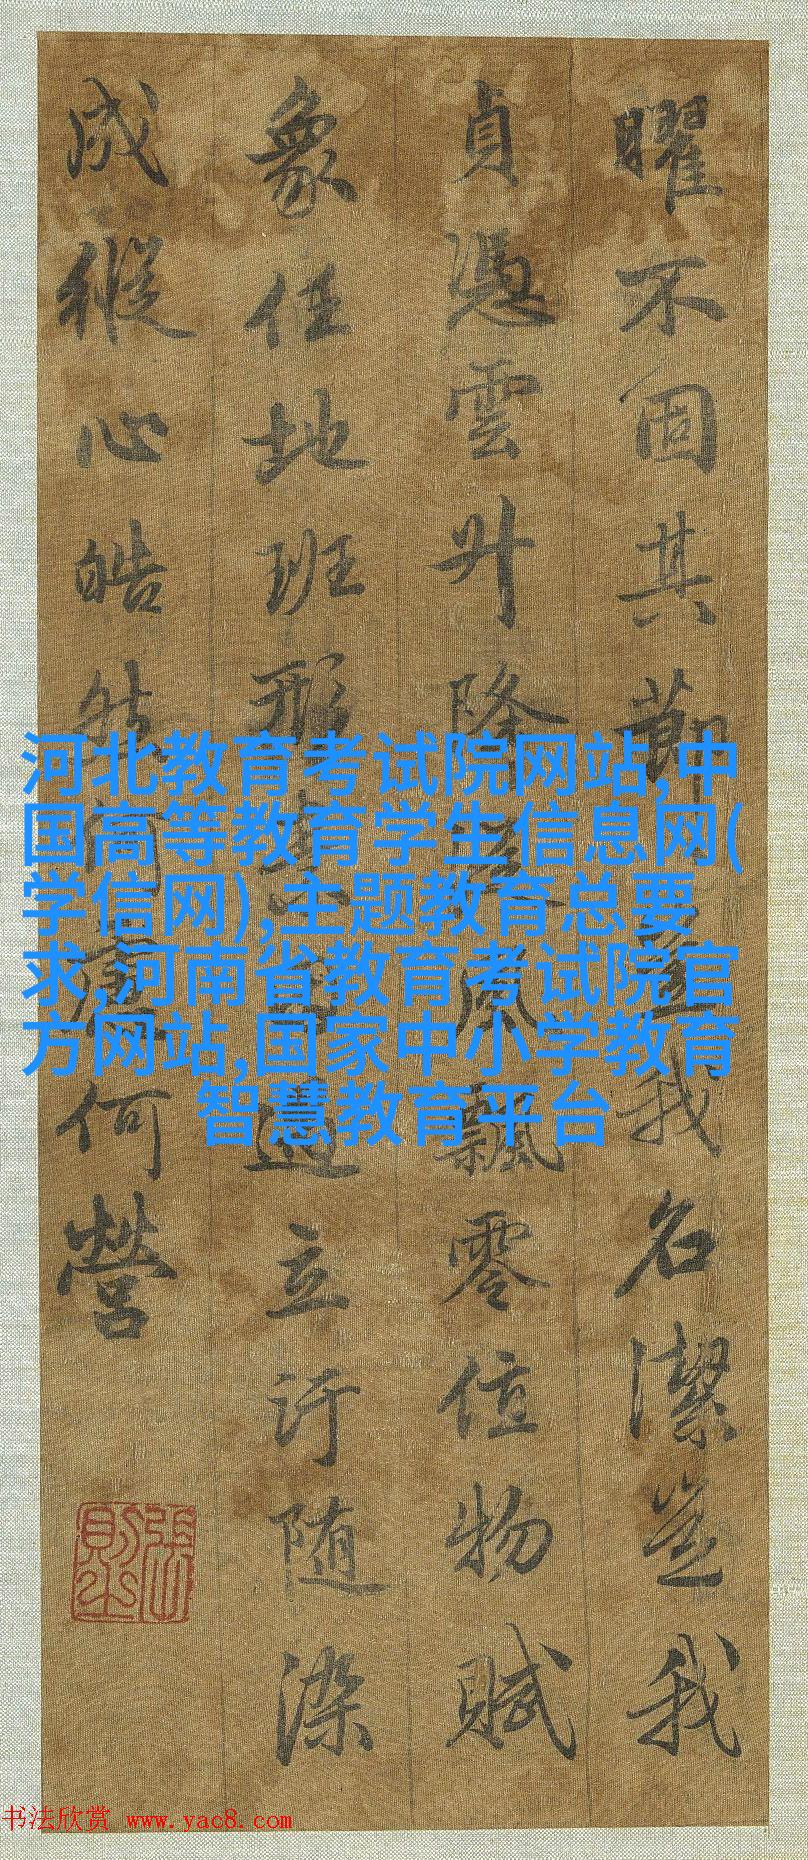 曜不固其節豈我名潔豈我
貞憑雲升降風飄零值物賦
象任地班形遇立汙随染
成縱心皓然何慮何營
張則之
河北教育考试院网站,中
国高等教育学生信息网(
学信网),主题教育总要
求,河南省教育考试院官
方网站,国家中小学教育
智慧教育平台
书法欣赏 www.yac8.com